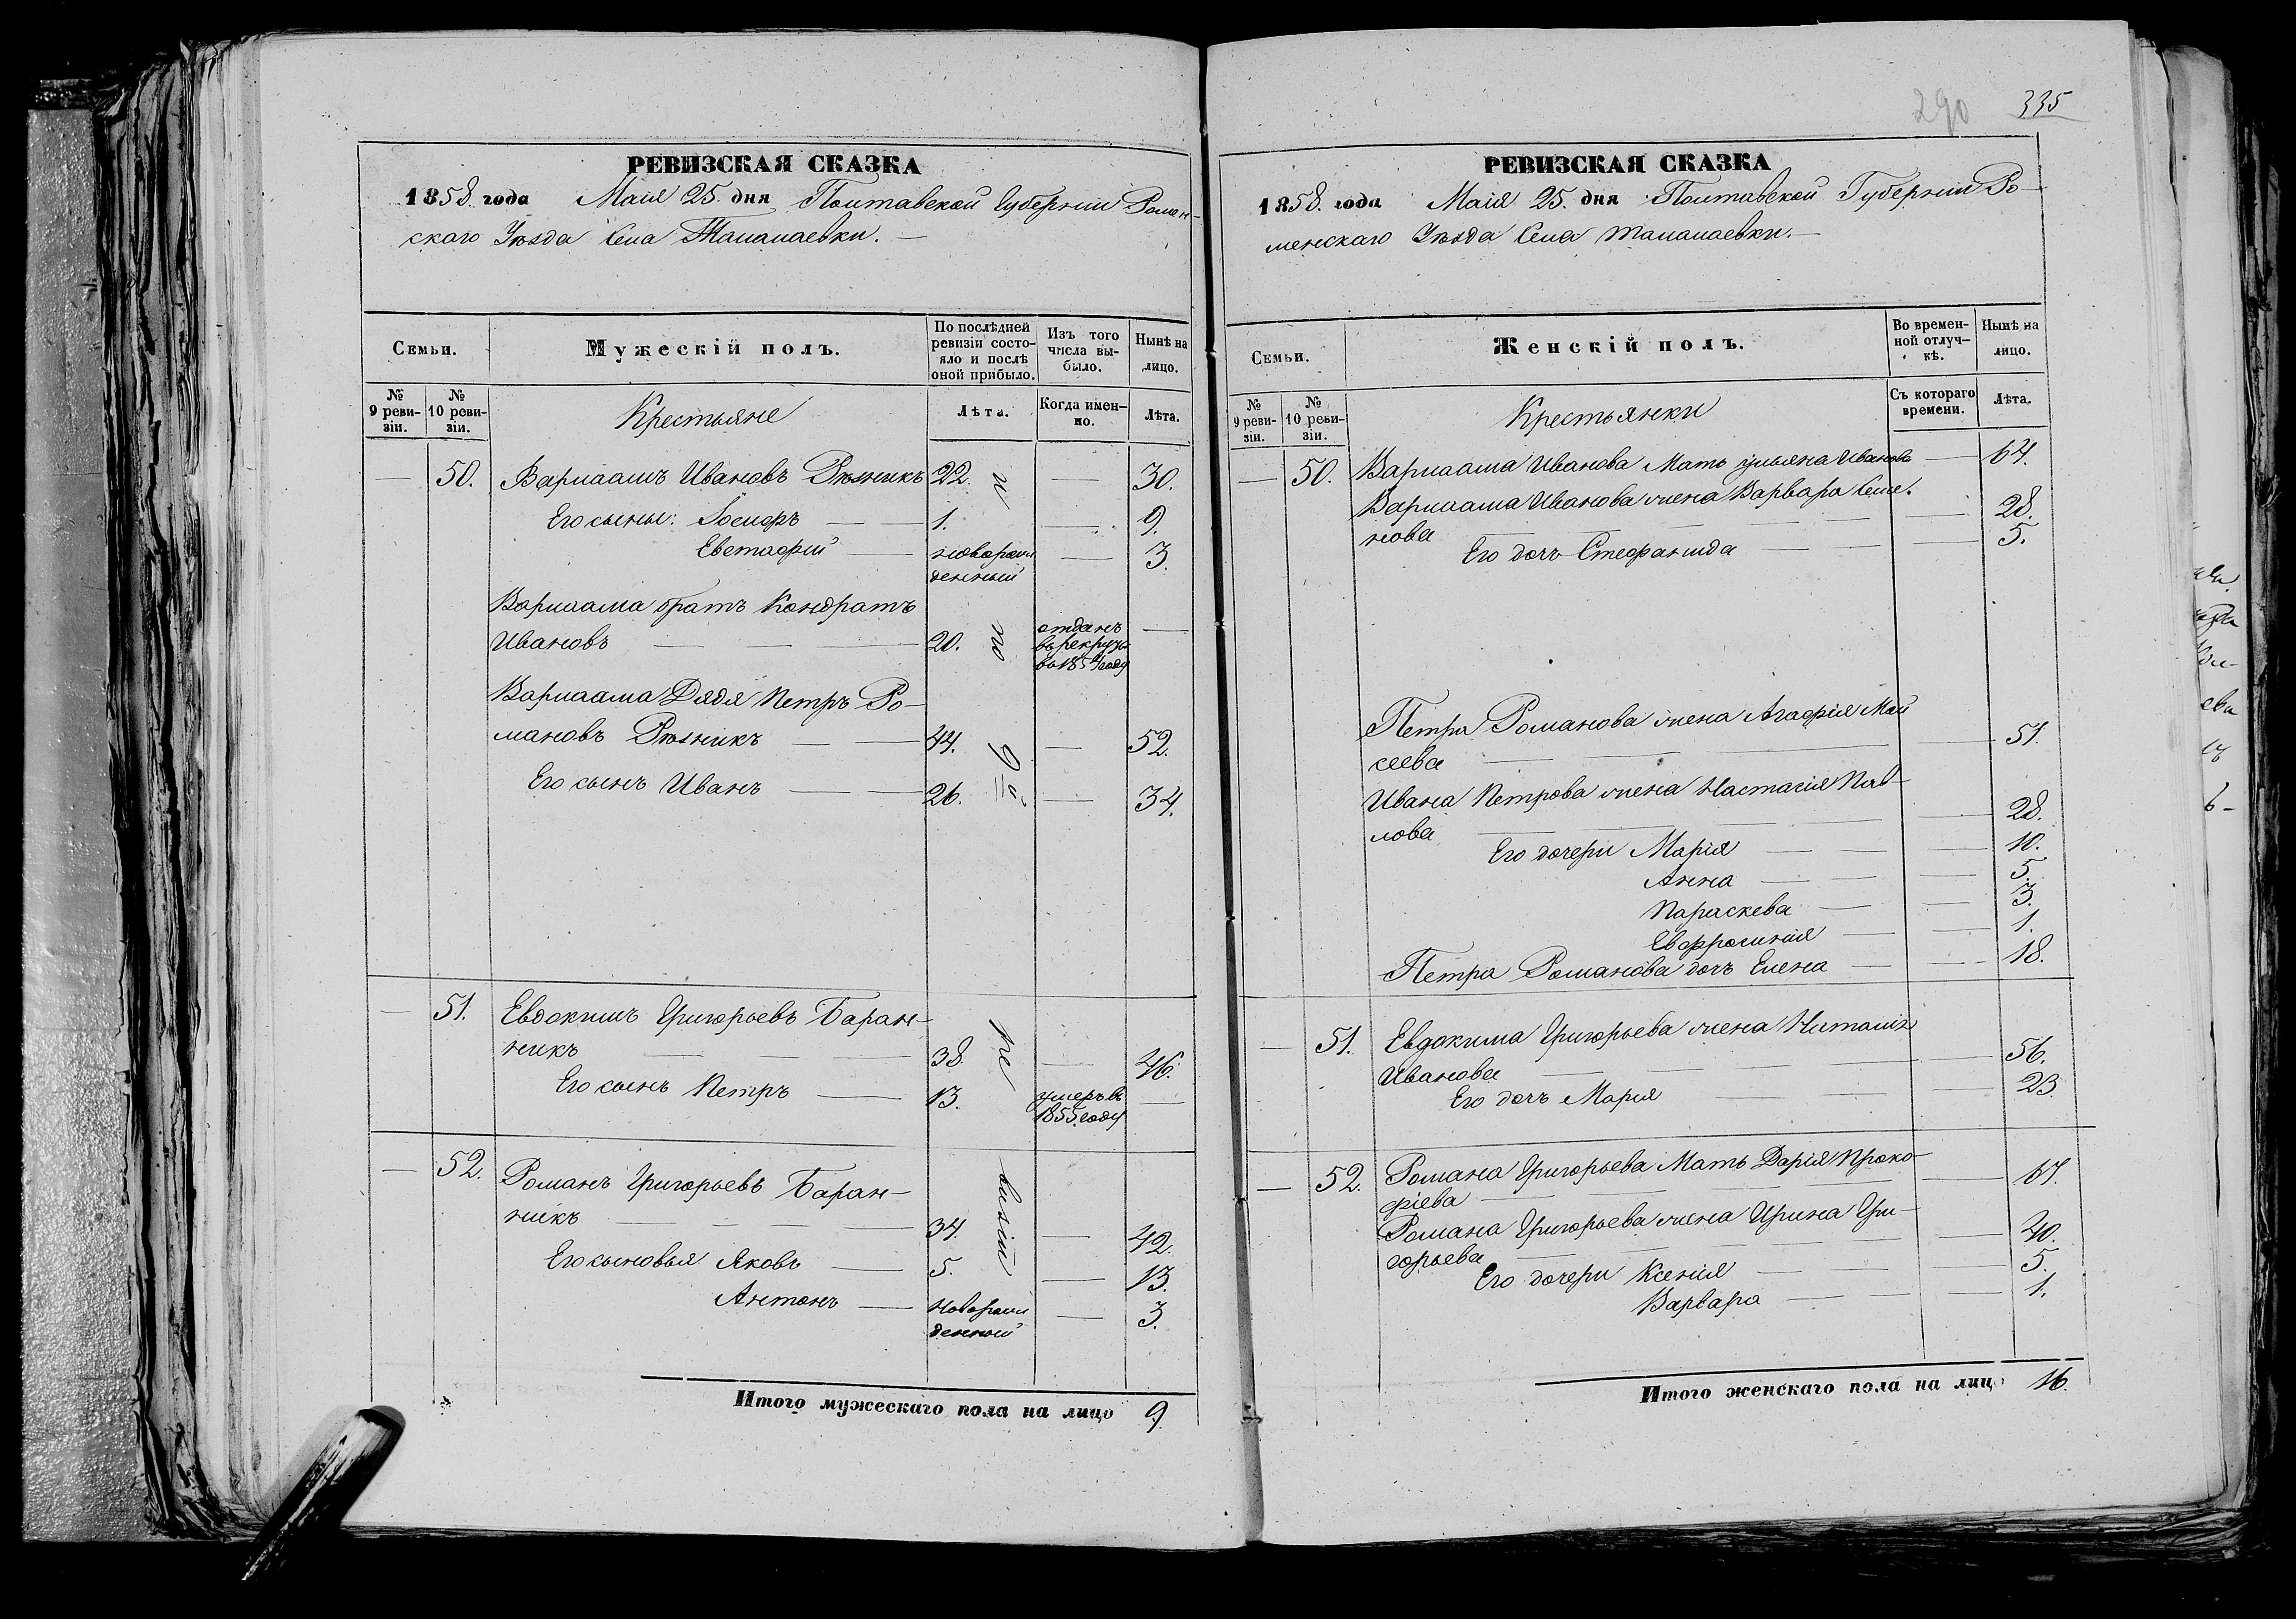 290 335
РЕВИЗСКАЯ СКАЗКА
1858. года Маия 25. дня Полтавской Губерніи Ромен-
скаго Уѣзда Села Талалаевки. —
Семьи.
Мужескій полъ.
По послѣдней
ревизіи состо-
яло и послѣ
оной прибыло.
Изъ того
числа вы-
было.
Нынѣ на
лицо.
№
9 реви-
зіи.
№
10 реви-
зіи.
Крестьяне
Лѣта.
Когда имен-
но.
Лѣта.
— 50. Варлаамъ Ивановъ Рѣзникъ 22. — 30.
Его сыны: Іосифъ — 1. — 9.
Евстафій — новорож
денный — 3.
Варлаама братъ Кондратъ
Ивановъ — — — 20. отданъ
въ рекруты
въ 1854 году —
Варлаама Дядя Петръ Ро-
мановъ Рѣзникъ — — 44. — 52.
Его сынъ Иванъ — — 26. — 34.
— 51. Евдокимъ Григорьевъ Баран-
никъ — 38. — 46.
Его сынъ Петръ — 13. умеръ въ
1855. году —
— 52. Романъ Григорьевъ Баран-
никъ — — — — 34. — 42.
Его сыновья Яковъ — 5. — 13.
Антонъ — новорож
денный — 3.
и
по
9й
ре
визіи
Итого мужескаго пола на лицо 9.
РЕВИЗСКАЯ СКАЗКА
1858. года Маія 25. дня Полтавской Губерніи Ро-
менскаго Уѣзда Села Талалаевки. —
Семьи.
Женскій полъ.
Во времен-
ной отлуч-
кѣ.
Нынѣ на
лицо.
№
9 реви-
зіи.
№
10 реви-
зіи.
Крестьянки
Съ котораго
времени.
Лѣта.
— 50. Варлаама Иванова Мать Ульяна Иванова — 64.
Варлаама Иванова жена Варвара Семе.
нова — — — — 28.
Его дочь Стефанида — — — 5.
Петра Романова жена Агафія Мой
сеева — — — — 51.
Ивана Петрова жена Настасія Пав-
лова — — — — 28.
Его дочери Марія — — — 10.
Анна — — — 5.
Параскева — — 3.
Евфросинія — — 1.
Петра Романова дочь Елена — — 18.
— 51. Евдокима Григорьева жена Наталія
Иванова — — — — 56.
Его дочь Мария — — — 23.
— 52. Романа Григорьева Мать Дарія Проко-
фіева — — — — 67.
Романа Григорьева жена Ирина Гри-
горьева — — — — 40.
Его дочери Ксенія — — 5.
Варвара — — — 1.
Итого женскаго пола на лицо 16.